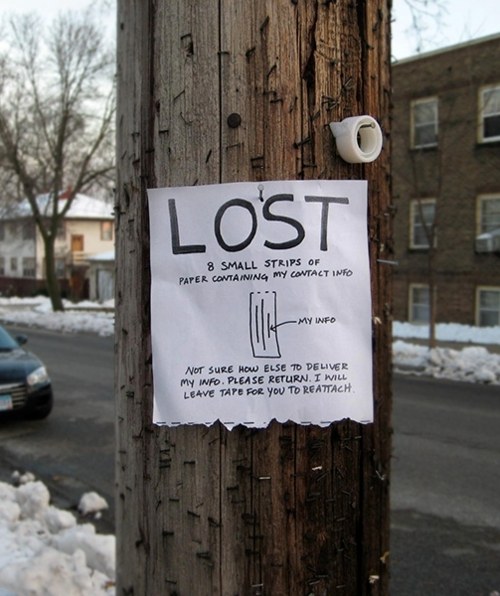 LOST
8 SMALL STRIPS OF
PAPER CONTAINING MY CONTACT INFO
MY INFO
NOT SURE HOW ELSE TO DELIVER
MY INFO. PLEASE RETURN. I WILL
LEAVE TAPE FOR YOU TO REATTACH.